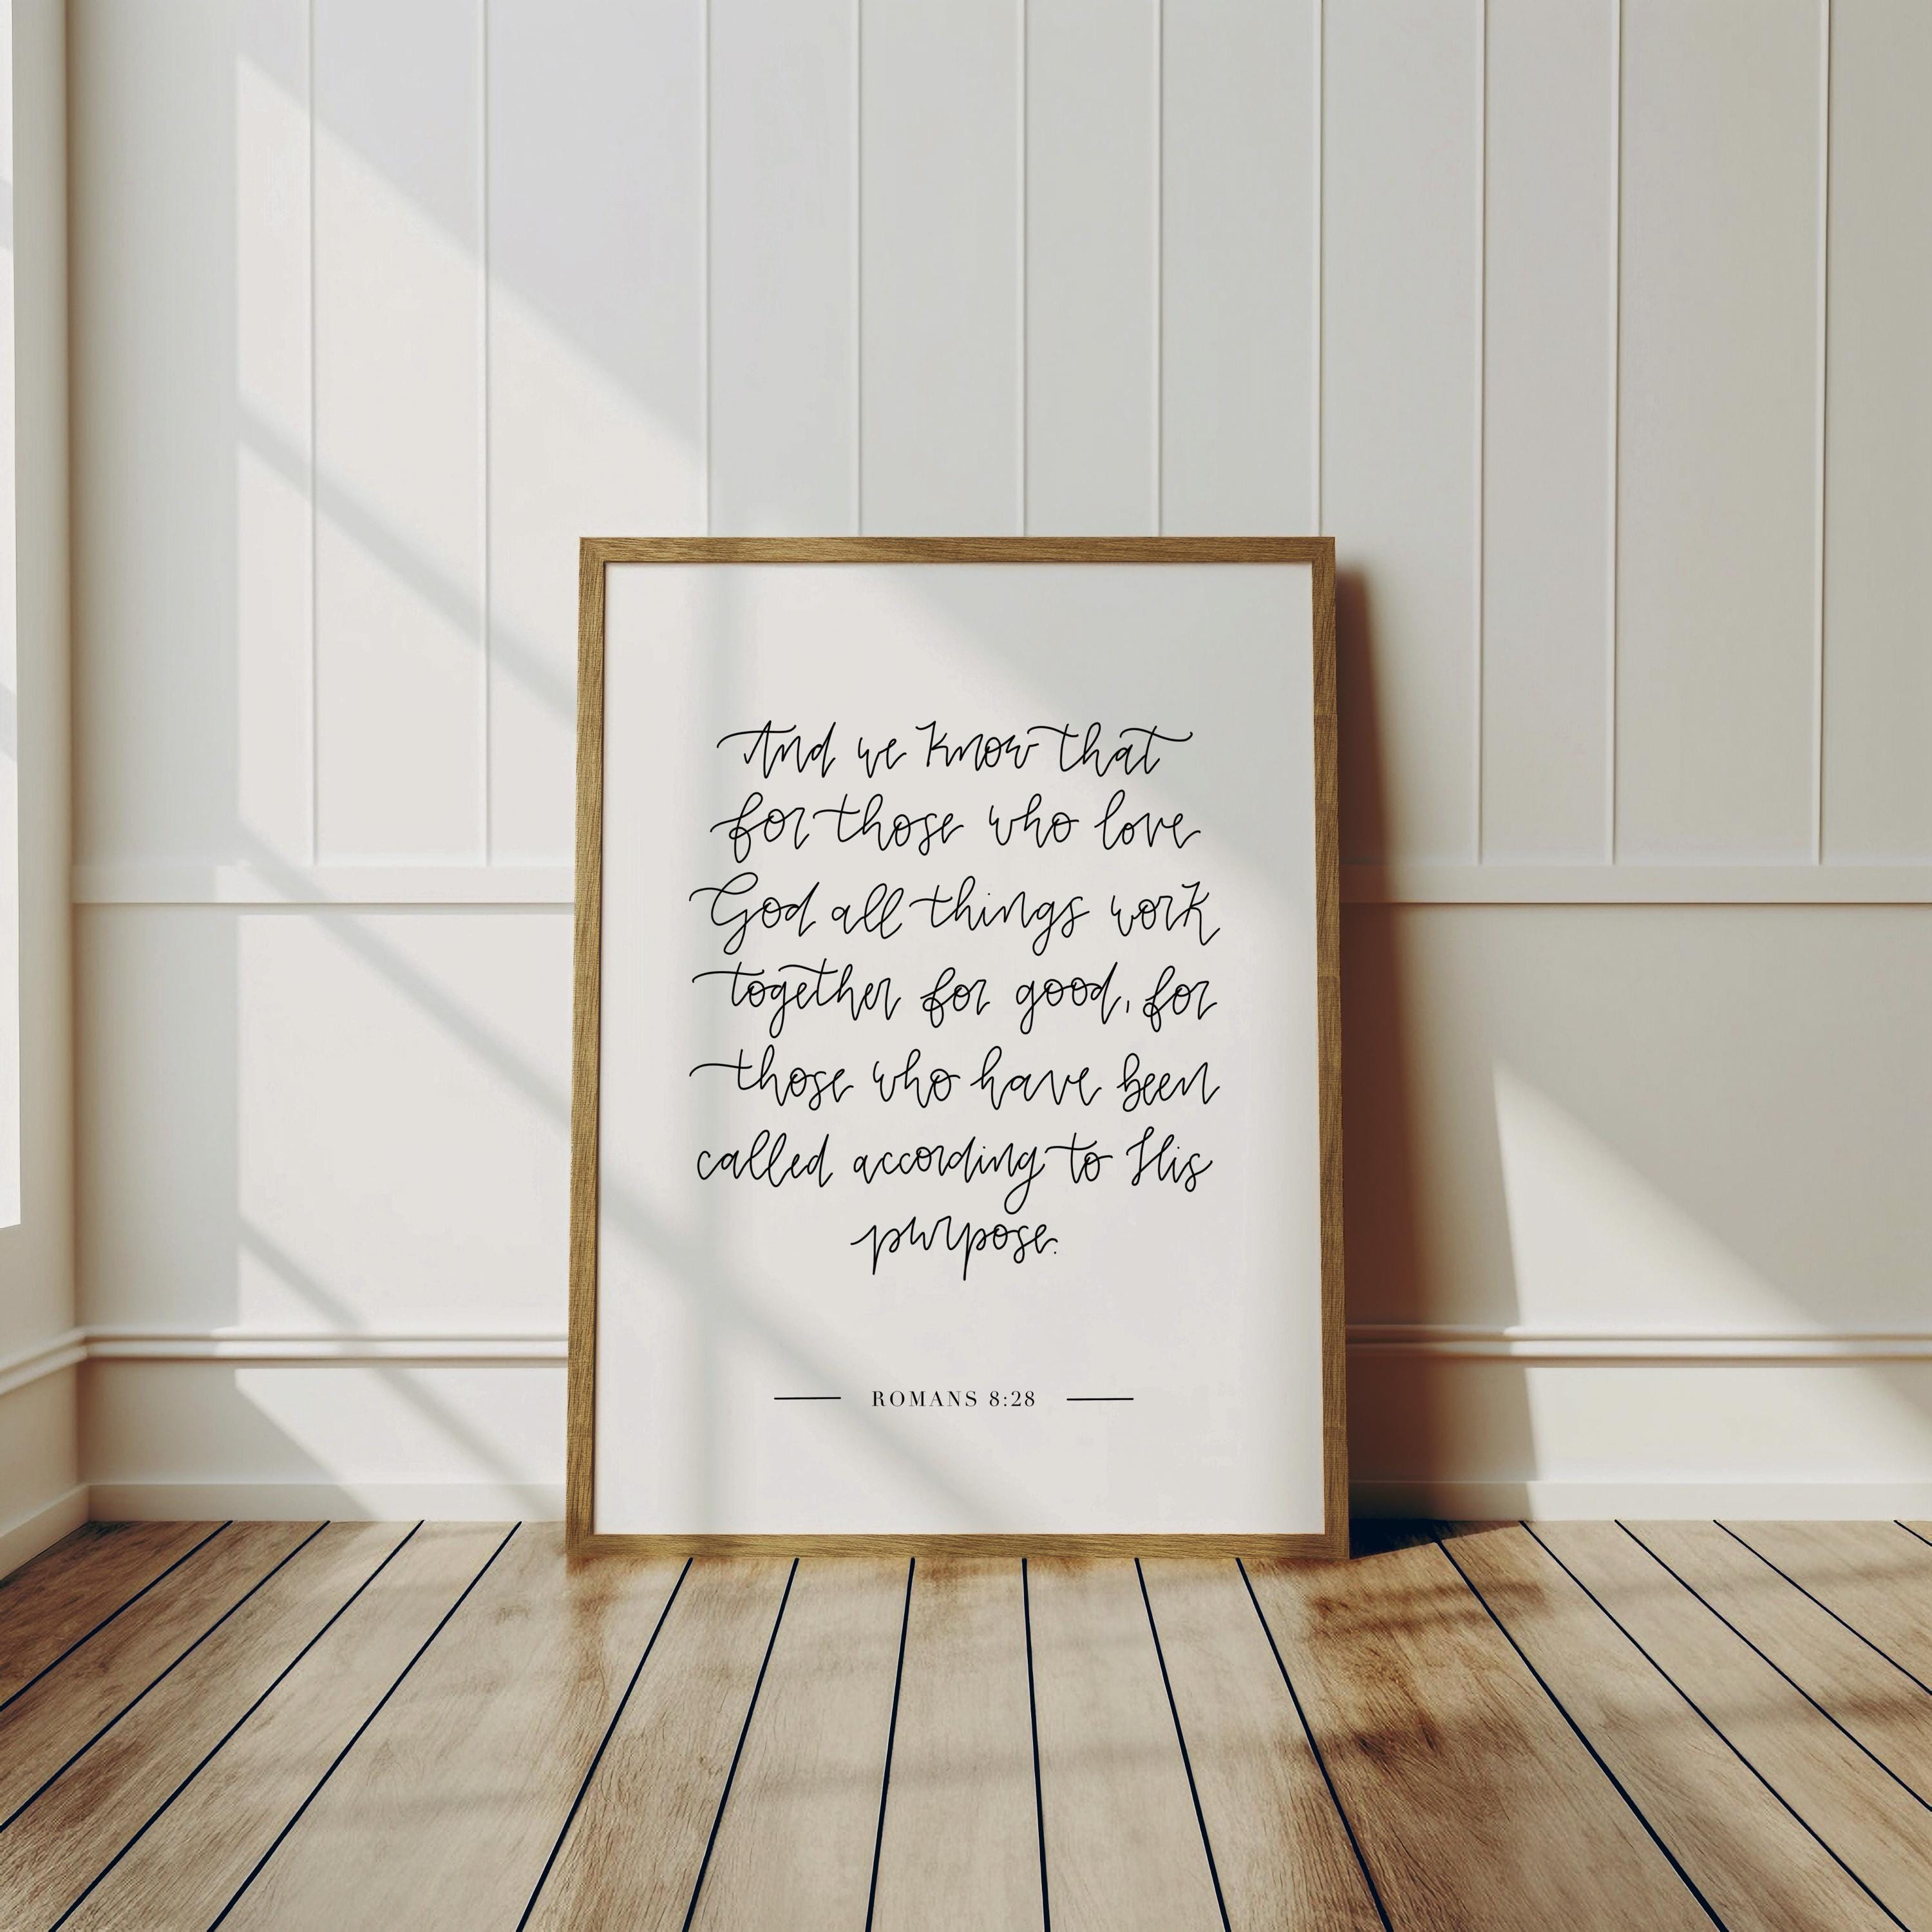 And we know that
for those who love
God all things work
together for good, for
those who have been
called according to His
purpose.
ROMANS 8:28